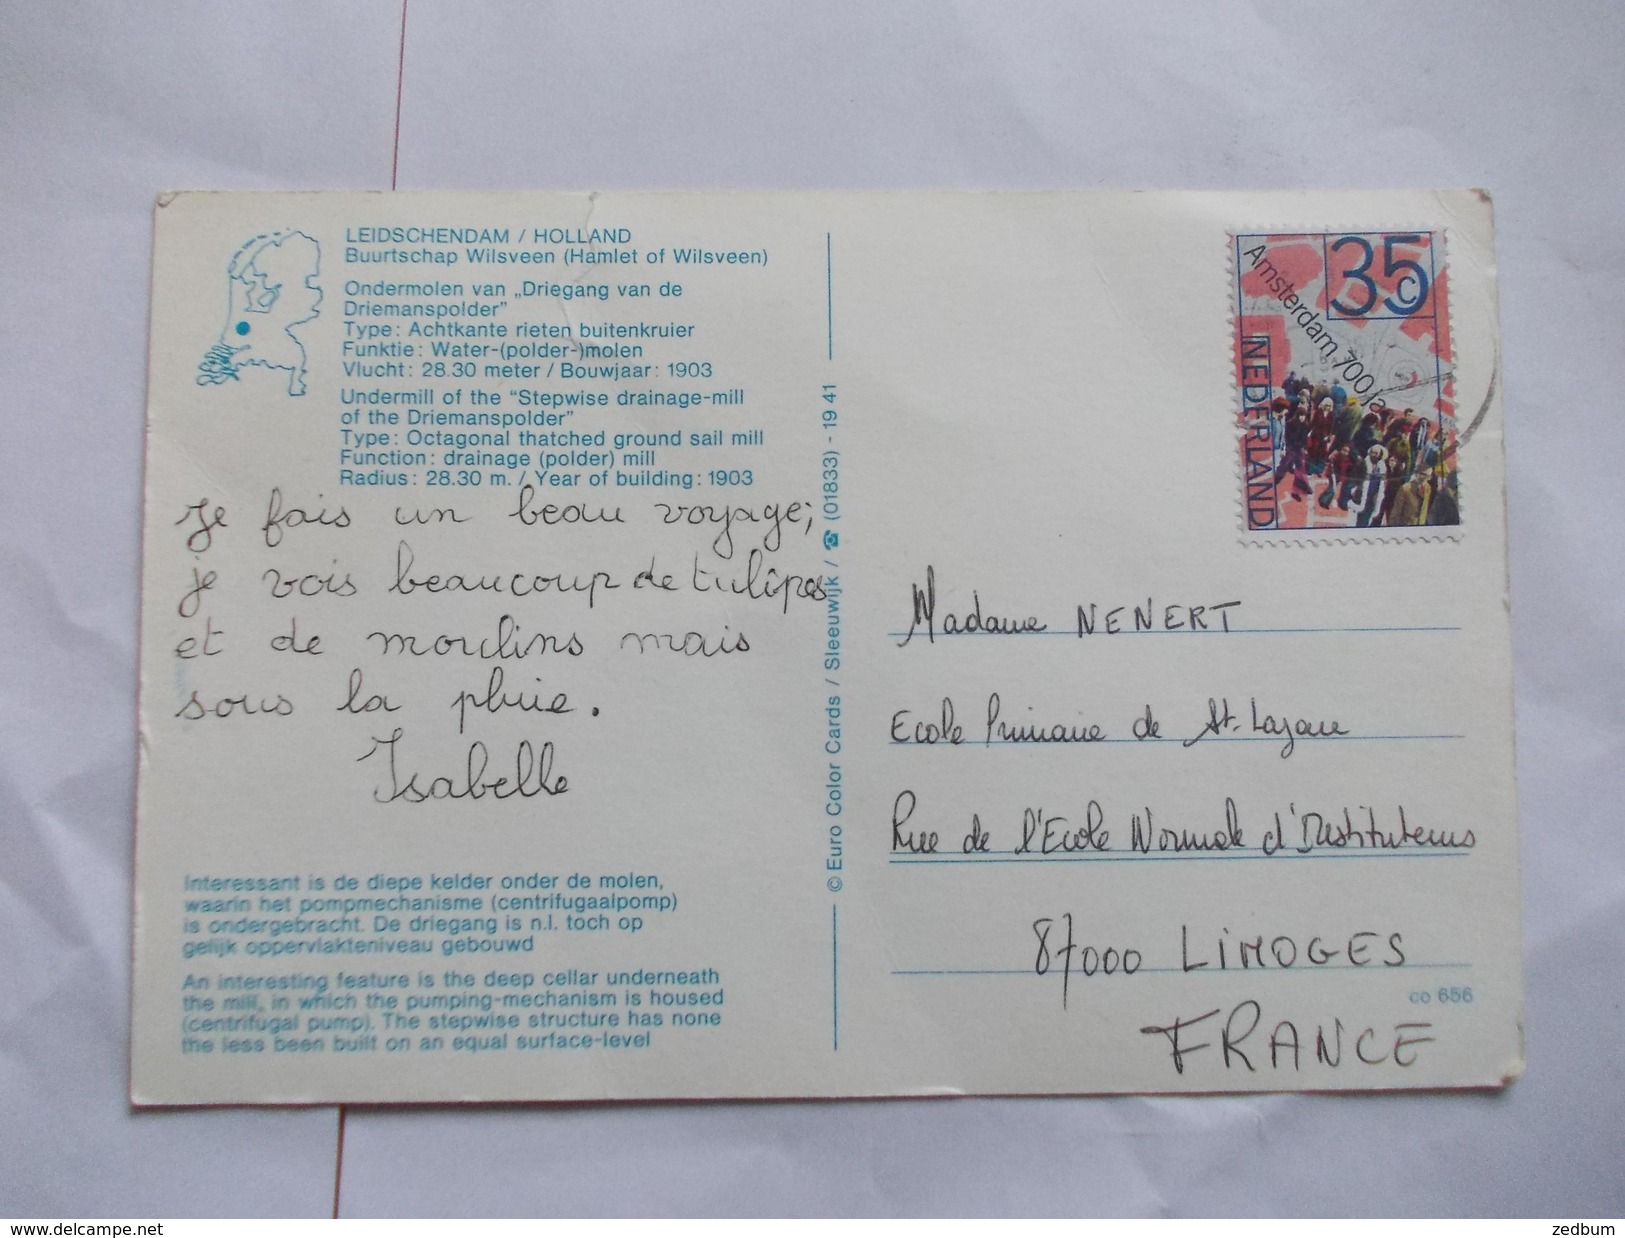 LEIDSCHENDAM / HOLLAND
Buurtschap Wilsveen (Hamlet of Wilsveen)
Ondermolen van „Driegang van de
Driemanspolder”
Type: Achtkante rieten buitenkruier
Funktie: Water-(polder-)molen
Vlucht: 28.30 meter / Bouwjaar: 1903
Undermill of the “Stepwise drainage-mill
of the Driemanspolder”
Type: Octagonal thatched ground sail mill
Function: drainage (polder) mill
Radius: 28.30 m. / Year of building: 1903
Je fais un beau voyage;
je vois beaucoup de tulipes
et de moulins mais
sous la pluie.
Isabelle
Interessant is de diepe kelder onder de molen,
waarin het pompmechanisme (centrifugaalpomp)
is ondergebracht. De driegang is n.l. toch op
gelijk oppervlakteniveau gebouwd
An interesting feature is the deep cellar underneath
the mill, in which the pumping-mechanism is housed
(centrifugal pump). The stepwise structure has none
the less been built on an equal surface-level
© Euro Color Cards / Sleeuwijk / ☎ (01833) - 19 41
35c
Amsterdam 700 ja
NEDERLAND
Madame NENERT
Ecole Primaire de St. Lazare
Rue de l'Ecole Normale d'Instituteurs
87000 LIMOGES
co 656
FRANCE
www.delcampe.net
zedbum